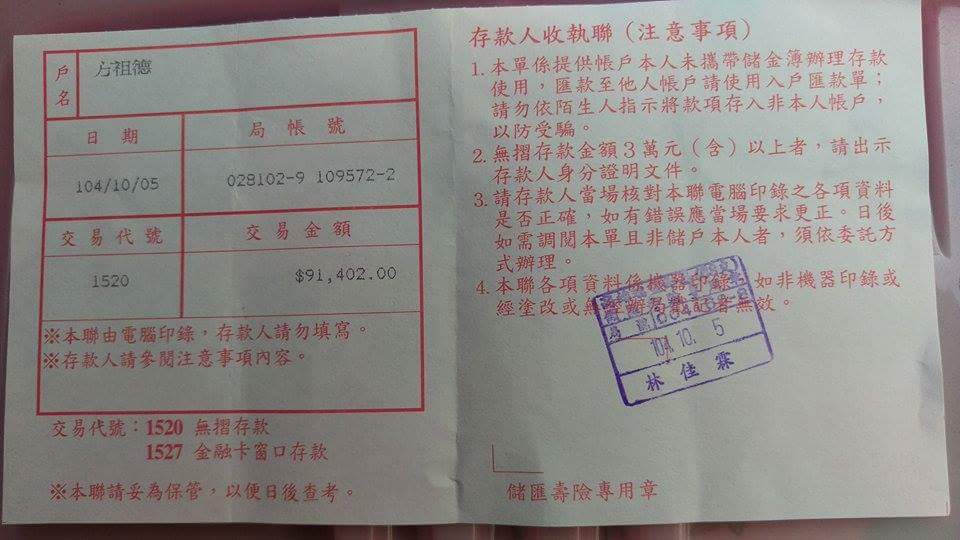 戶名
方祖德
日期
局帳號
104/10/05
028102-9 109572-2
交易代號
交易金額
1520
$91,402.00
※本聯由電腦印錄，存款人請勿填寫。
※存款人請參閱注意事項內容。
交易代號：1520 無摺存款
1527 金融卡窗口存款
※本聯請妥為保管，以便日後查考。
存款人收執聯（注意事項）
1. 本單係提供帳戶本人未攜帶儲金簿辦理存款
使用，匯款至他人帳戶請使用入戶匯款單；
請勿依陌生人指示將款項存入非本人帳戶，
以防受騙。
2. 無摺存款金額3萬元（含）以上者，請出示
存款人身分證明文件。
3. 請存款人當場核對本聯電腦印錄之各項資料
是否正確，如有錯誤應當場要求更正。日後
如需調閱本單且非儲戶本人者，須依委託方
式辦理。
4. 本聯各項資料係機器印錄，如非機器印錄或
經塗改或無經辦局戳記皆無效。
104. 10. 5
林佳霖
儲匯壽險專用章